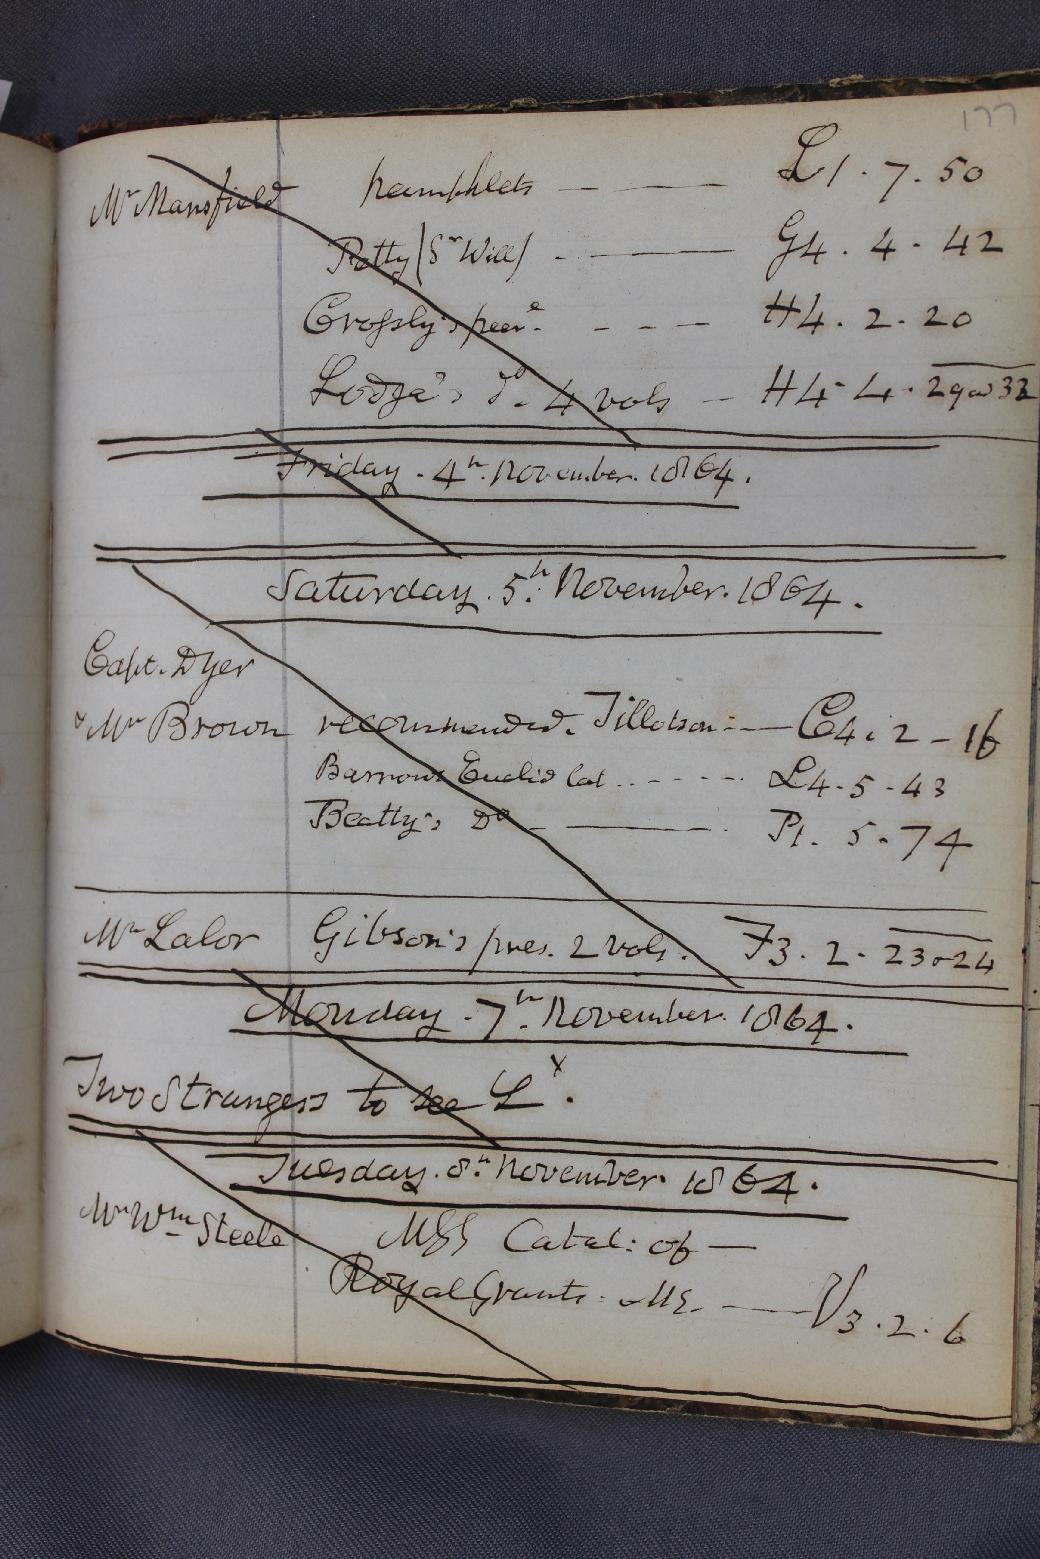 177
Mr Mansfield pamphlets — — L1.7.50
Petty (Sr Will) - — G4.4.42
Crossly's peere. - - - H4.2.20
Lodge's do. 4 vols — H4.4.29
Friday. 4th November. 1864.
Saturday. 5th November. 1864.
Capt. Dyer
& Mr Brown recommended. Tillotson — C4.2-16
Barrow's Euclid lat. - - - - L4.5.43
Beatty's Do - — P1.5.74
Mr Lalor Gibson's pres. 2 vols. F3.2.23
Monday. 7th November. 1864.
Two Strangers to see Ly.
Tuesday. 8th November. 1864.
Mr Wm Steele MSS Catal: of —
Royal Grants. MS. — V3.2.6